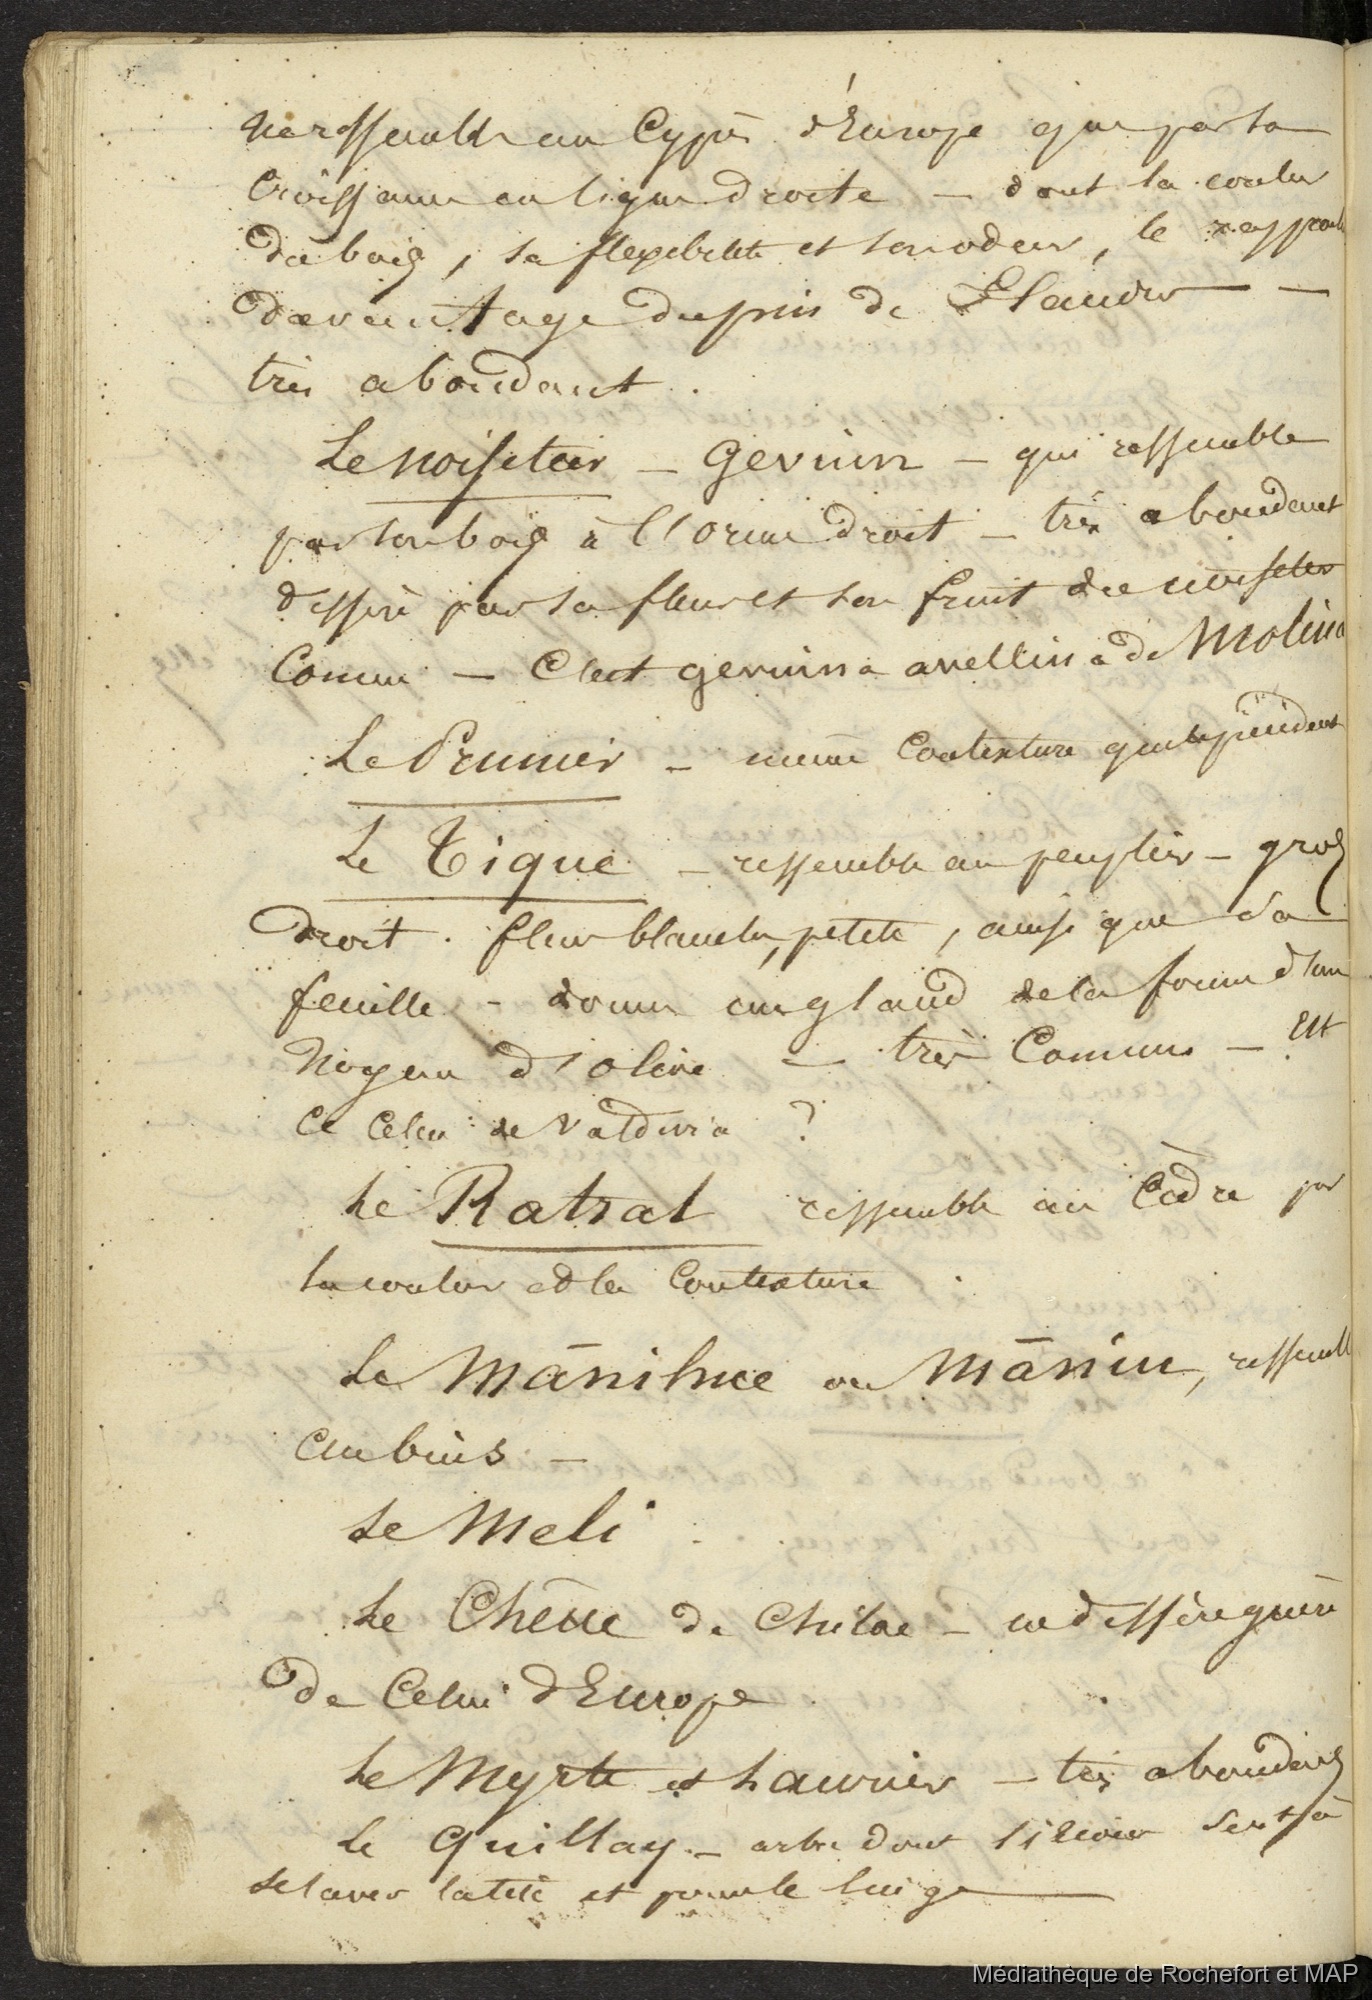 ne ressemble au Cyprès d'Europe que par sa
croissance en ligne droite — dont la couleur
du bois, sa flexibilité et son odeur, le rapproche
davantage du pin de Flandres —
très abondant.
Le noisetier — Gevuin — qui ressemble
par son bois à l'orme droit — très abondant
diffère par sa fleur et son fruit du noisetier
Commun — C'est gevuina avellina de Molina
Le Prunier — même Contexture que le précédent
Le Tique — ressemble au peuplier — gros
droit. fleur blanche, petite, ainsi que sa
feuille — donne un gland de la forme d'un
Noyau d'olive — très Commun — Est
ce celui de Valdivia ?
Le Ratral ressemble au Cèdre par
la couleur et la Contexture
Le Mānihue ou Māniu, ressemble
au buis —
Le Meli
Le Chêne de Chiloe — ne diffère guère
de Celui d'Europe
Le Myrte et Laurier — très abondans
Le Quillay — arbre dont l'écorce sert à
se laver la tête et pour le linge —
Médiathèque de Rochefort et MAP